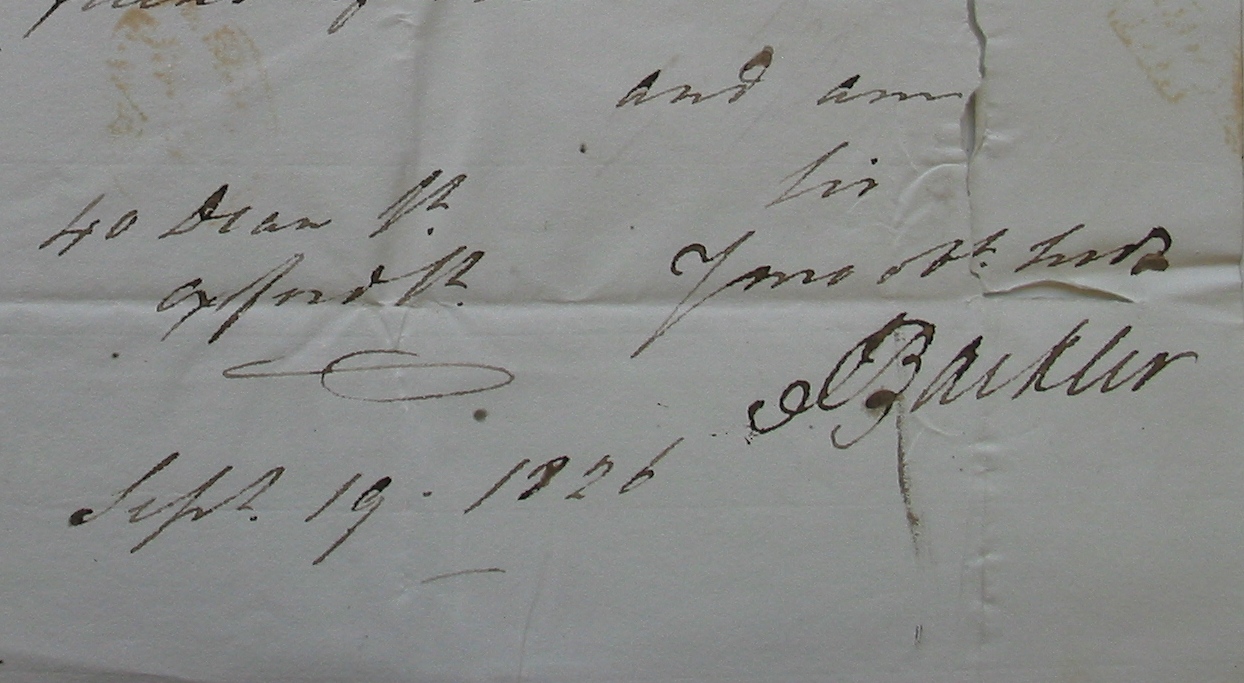 and am
Sir
40 Dean St.
Your obt. Servt
Oxford St.
A Backler
Sept. 19. 1826